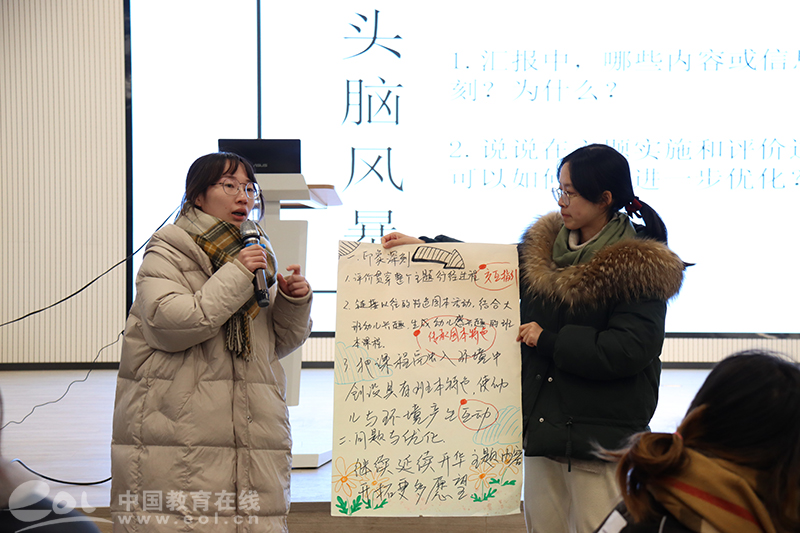 头脑风暴
1. 汇报中，哪些内容或信息
刻？为什么？
2. 说说在主题实施和评价
可以如何进一步优化
一.印象深刻
1.评价贯穿整个主题
2.链接以往的特色园本活动，结合大
班幼儿兴趣，生成幼儿感兴趣的班
本课程。
传承园本特色
3.把课程融入环境中
创设具有班本特色，使幼
儿与环境产生互动
二.问题与优化
继续延续升华主题内容
开拓更多愿望
eol 中国教育在线
www.eol.cn